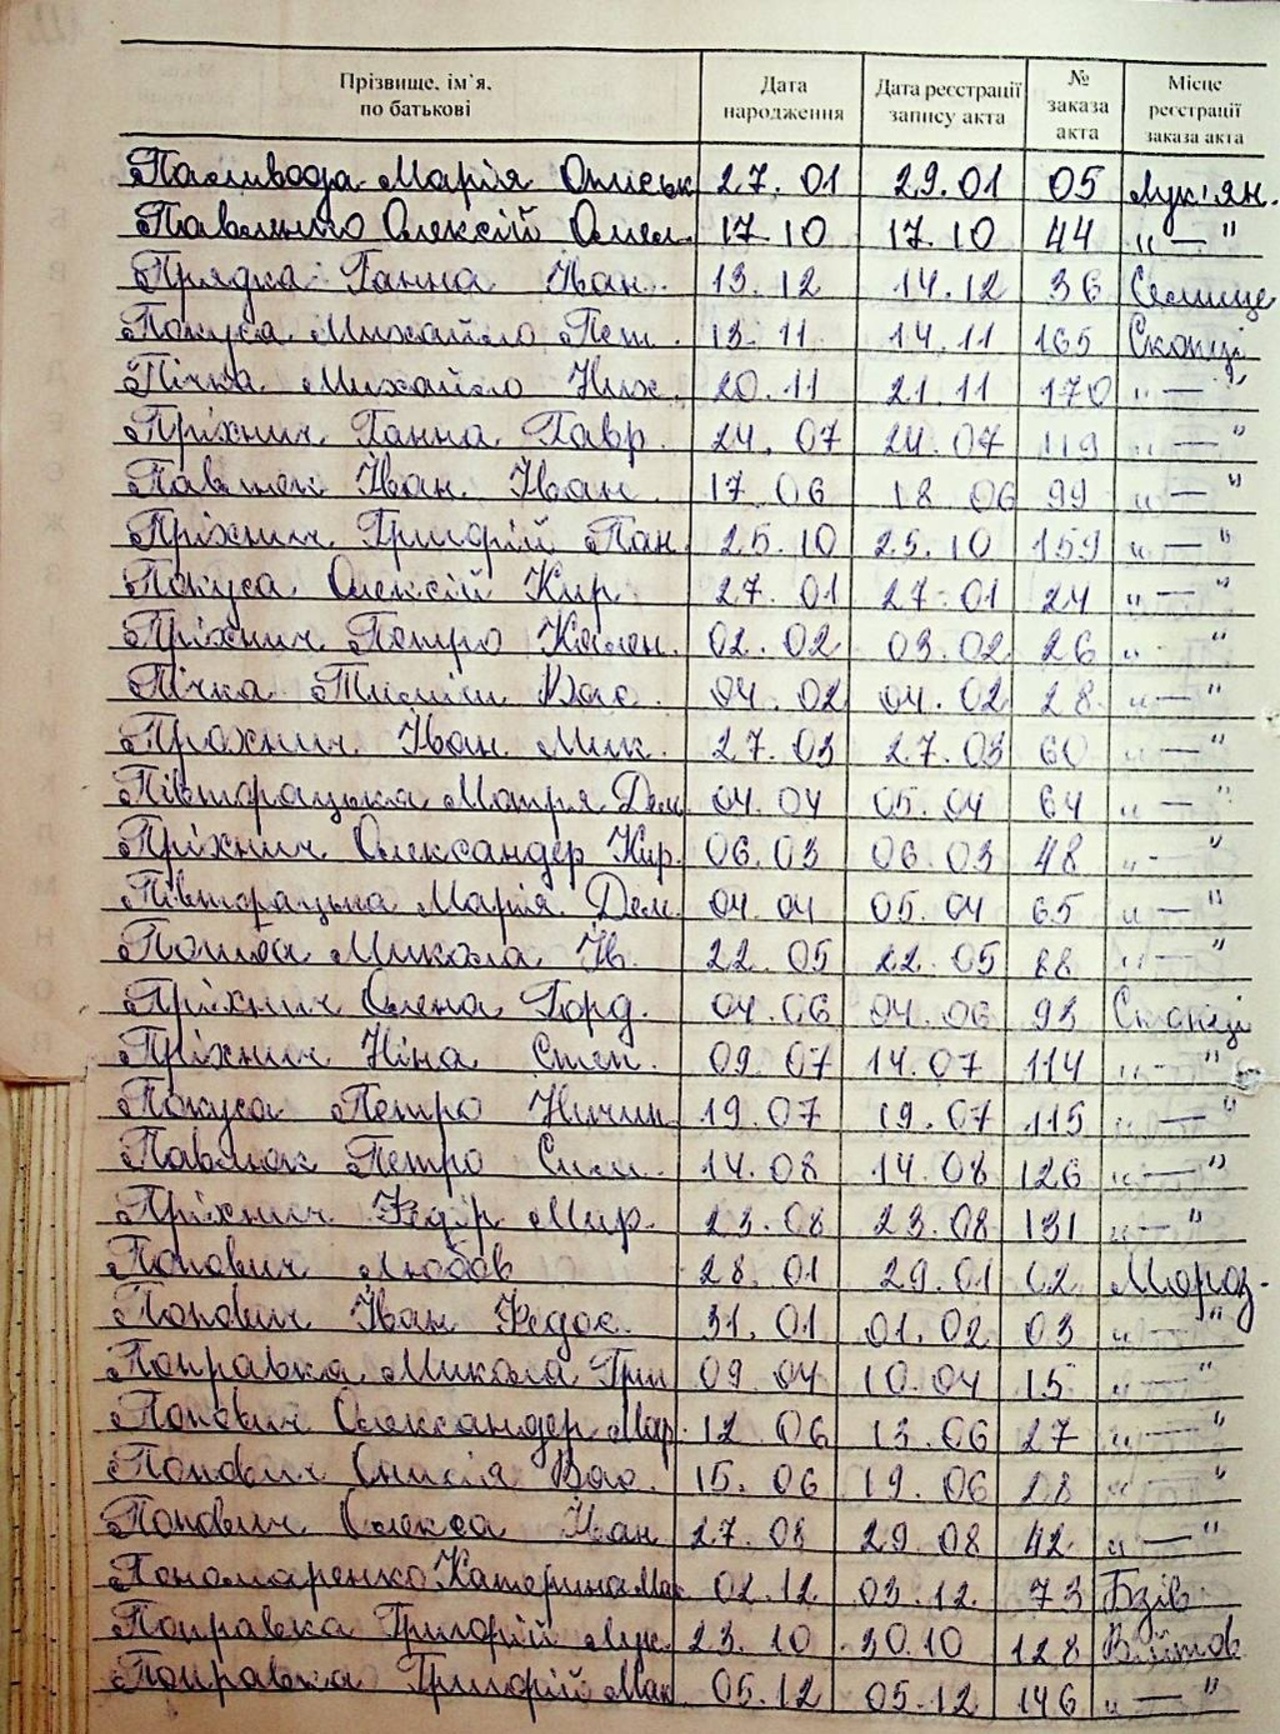 Прізвище, ім'я, по батькові Дата народження Дата реєстрації запису акта № заказа акта Місце реєстрації заказа акта
Паливода Марія Ониськ 27.01 29.01 05 Лук'ян.
Павленко Олексій Омел. 17.10 17.10 44 „—"
Прядка Ганна Іван. 13.12 14.12 36 Селище
Покуса Михайло Пет. 13.11 14.11 165 Скопці
Пічка Михайло Ник. 20.11 21.11 170 „—"
Пріхнич Ганна Гавр. 24.07 24.07 119 „—"
Павлюк Іван Іван. 17.06 18.06 99 „—"
Пріхнич Григорій Пан. 25.10 25.10 159 „—"
Покуса Олексій Кир. 27.01 27.01 24 „—"
Пріхнич Петро Кален. 02.02 03.02 26 „—"
Пічка Тиміш Вас. 04.02 04.02 28 „—"
Прохнич Іван Мик. 27.03 27.03 60 „—"
Півторацька Мотря Дем. 04.04 05.04 64 „—"
Пріхнич Олександер Кир. 06.03 06.03 48 „—"
Півторацька Марія Дем. 04.04 05.04 65 „—"
Микола Ів. 22.05 22.05 88 „—"
Пріхнич Олена Горд. 04.06 04.06 93 Скопці
Пріхнич Ніна Степ. 09.07 14.07 114 „—"
Покуса Петро Ничип. 19.07 19.07 115 „—"
Павлюк Петро Сим. 14.08 14.08 126 „—"
Пріхнич Федір Мир. 23.08 23.08 131 „—"
Попович Любов 28.01 29.01 02 Мороз.
Попович Іван Федос. 31.01 01.02 03 „—"
Поправка Микола Григ 09.04 10.04 15 „—"
Попович Олександер Мар. 12.06 13.06 27 „—"
Попович Онисія Вас. 15.06 19.06 28 „—"
Попович Олекса Іван 27.08 29.08 42 „—"
Пономаренко Катерина Мак 02.12 03.12. 73 Бзів
Поправка Григорій Лук. 23.10 30.10 128 Войтов
Поправка Григорій Мак 05.12 05.12 146 „—"